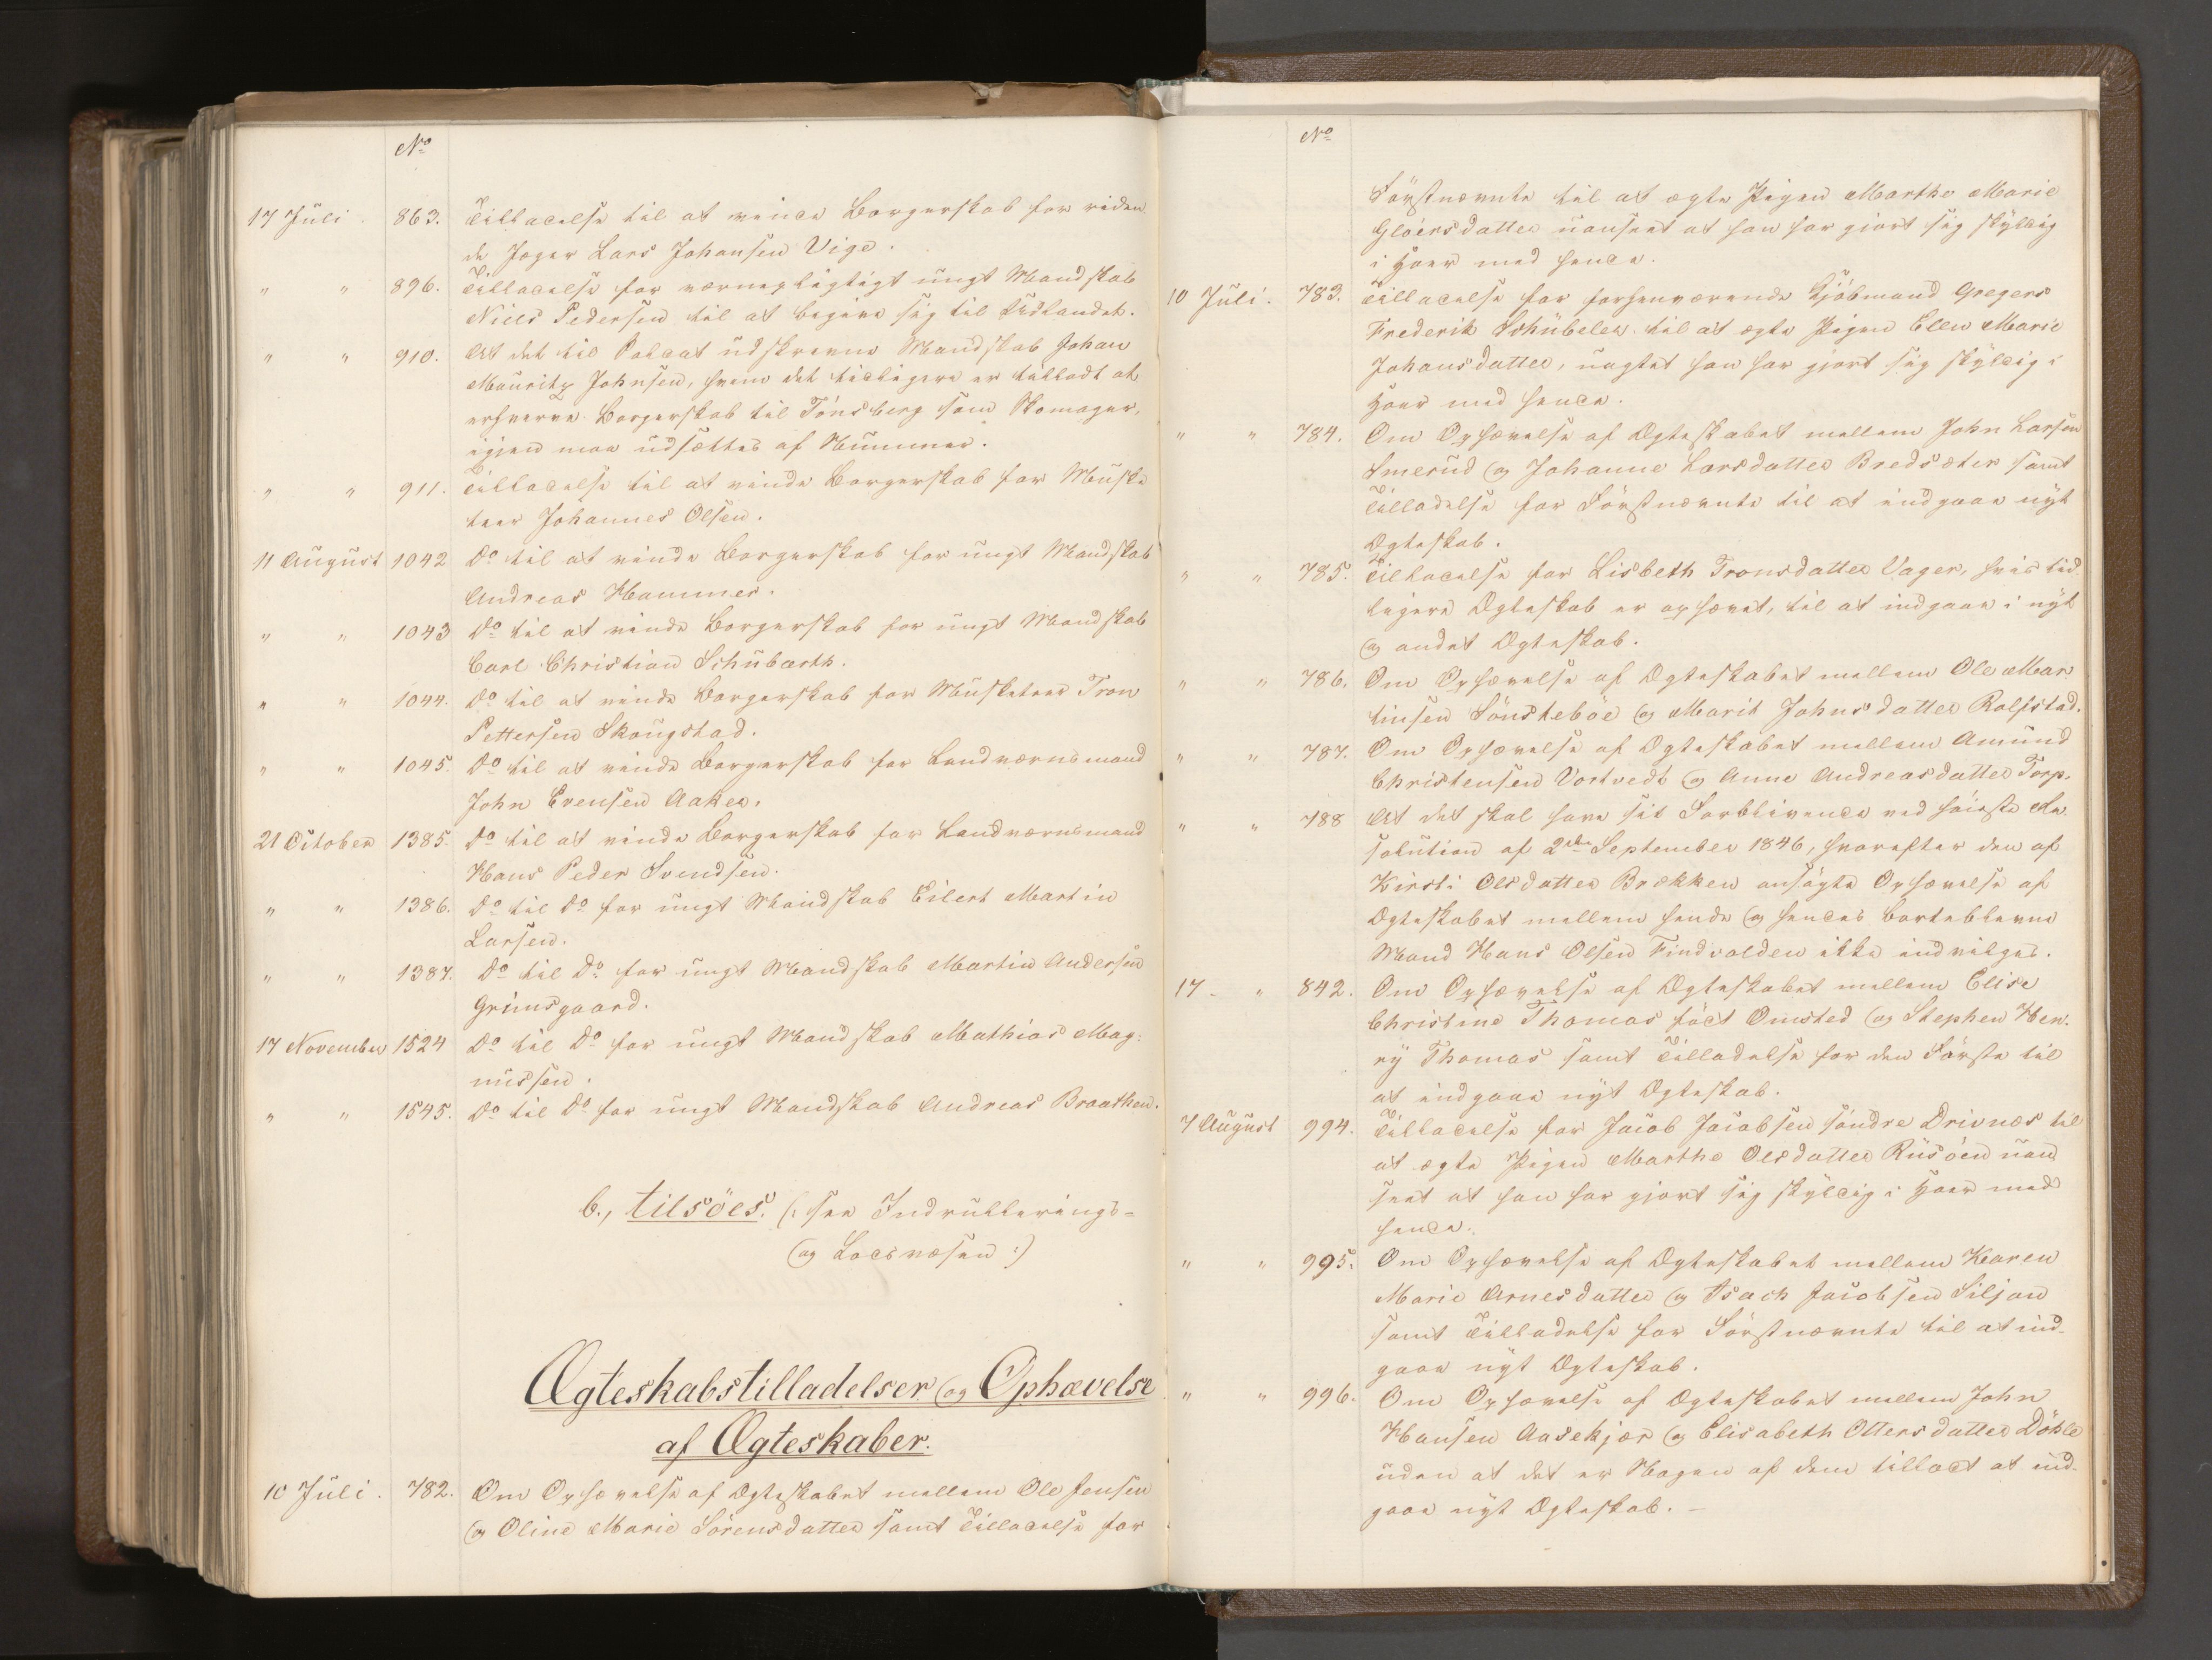 No
17 Juli 863. Tilladelse til at vinde Borgerskab for riden
de Jæger Lars Johansen Vige.
" " 896. Tilladelse for værnepligtigt ungt Mandskab
Niels Pedersen til at begive sig til Udlandet.
" " 910. At det til Soldat udskrevne Mandskab Johan
Mauritz Johnsen, hvem det tidligere er tilladt at
erhverve Borgerskab til Tönsberg som Skomager,
igjen maa udsættes af Nummer.
" " 911. Tilladelse til at vinde Borgerskab for Muske
teer Johannes Olsen.
11 August 1042 Do til at vinde Borgerskab for ungt Mandskab
Andreas Hammer.
" " 1043 Do til at vinde Borgerskab for ungt Mandskab
Carl Christian Schübarth.
" " 1044. Do til at vinde Borgerskab for Musketeer Tron
Pettersen Skougstad.
" " 1045. Do til at vinde Borgerskab for Landværnsmand
John Evensen Aaker.
21 October 1385. Do til at vinde Borgerskab for Landværnsmand
Hans Peder Svendsen.
" " 1386. Do til Do for ungt Mandskab Eilert Martin
Larsen.
" " 1387. Do til Do for ungt Mandskab Martin Andersen
Grimsgaard.
17 November 1524 Do til Do for ungt Mandskab Mathias Mag-
nussen.
" " 1545. Do til Do for ungt Mandskab Andreas Braathen.
b., tilsöes. (: see Indrullerings-
og Lodsvæsen :)
Ægteskabstilladelser og Ophævelse
af Ægteskaber.
10 Juli. 782. Om Ophævelse af Ægteskabet mellem Ole Jensen
og Oline Marie Sörensdatter samt Tilladelse for
No
Förstnævnte til at ægte Pigen Marthe Marie
Glöersdatter uanseet at han har gjort sig skyldig
i Hoer med hende.
10 Juli. 783. Tilladelse for forhenværende Kjöbmand Gregers
Frederik Schübeler til at ægte Pigen Ellen Marie
Johansdatter, uagtet han har gjort sig skyldig i
Hoer med hende.
" " 784. Om Ophævelse af Ægteskabet mellem John Larsen
Smerud og Johanne Larsdatter Bredsæter samt
Tilladelse for Förstnævnte til at indgaae nyt
Ægteskab.
" " 785. Tilladelse for Lisbeth Tronsdatter Vager, hvis tid
ligere Ægteskab er ophævet, til at indgaae i nyt
og andet Ægteskab.
" " 786. Om Ophævelse af Ægteskabet mellem Ole Mar
tinsen Sönsteböe og Marit Johnsdatter Rolfstad.
" " 787. Om Ophævelse af Ægteskabet mellem Amund
Christensen Vortvedt og Anne Andreasdatter Torp.
" " 788 At det skal have sit Forblivende ved höieste Re
solution af 2den September 1846, hvorefter den af
Kirsti Olsdatter Brækken ansögte Ophævelse af
Ægteskabet mellem hende og hendes borteblevne
Mand Hans Olsen Findvolden ikke indvilges.
17 " 842. Om Ophævelse af Ægteskabet mellem Elise
Christine Thomas född Omsted og Stephen Hen-
ry Thomas samt Tilladelse for den Förste til
at indgaae nyt Ægteskab.
7 August 994. Tilladelse for Jacob Jacobsen söndre Drivnæs til
at ægte Pigen Marthe Olsdatter Rüsöen uan
seet at han har gjort sig skyldig i Hoer med
hende.
" " 995. Om Ophævelse af Ægteskabet mellem Karen
Marie Arnesdatter og Isach Jacobsen Siljan
samt Tilladelse for Förstnævnte til at ind-
gaae nyt Ægteskab.
" " 996. Om Ophævelse af Ægteskabet mellem John
Hansen Aasekjær og Elisabeth Ottersdatter Döhle
uden at det er Nogen af dem tilladt at ind-
gaae nyt Ægteskab. —